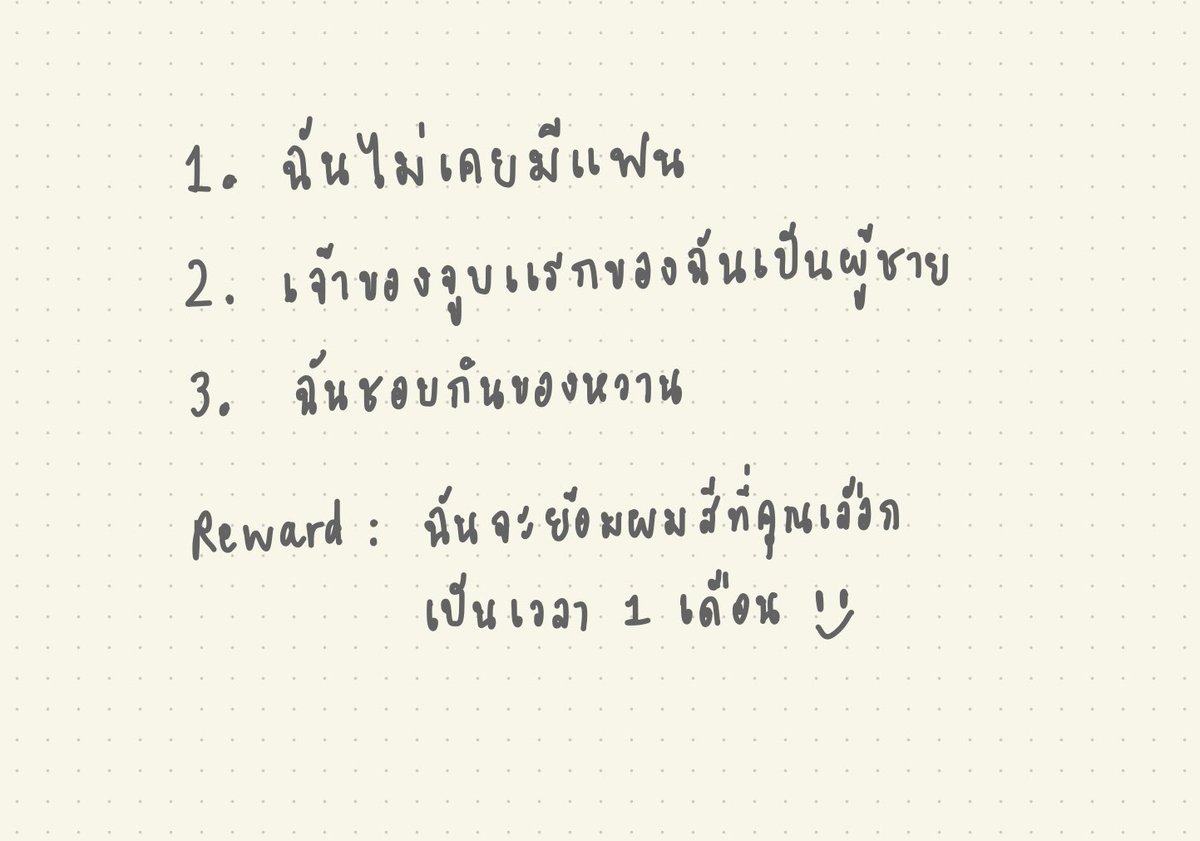 1. ฉันไม่เคยมีแฟน
2. เจ้าของจูบแรกของฉันเป็นผู้ชาย
3. ฉันชอบกินของหวาน
Reward : ฉันจะย้อมผมสีที่คุณเลือก
เป็นเวลา 1 เดือน